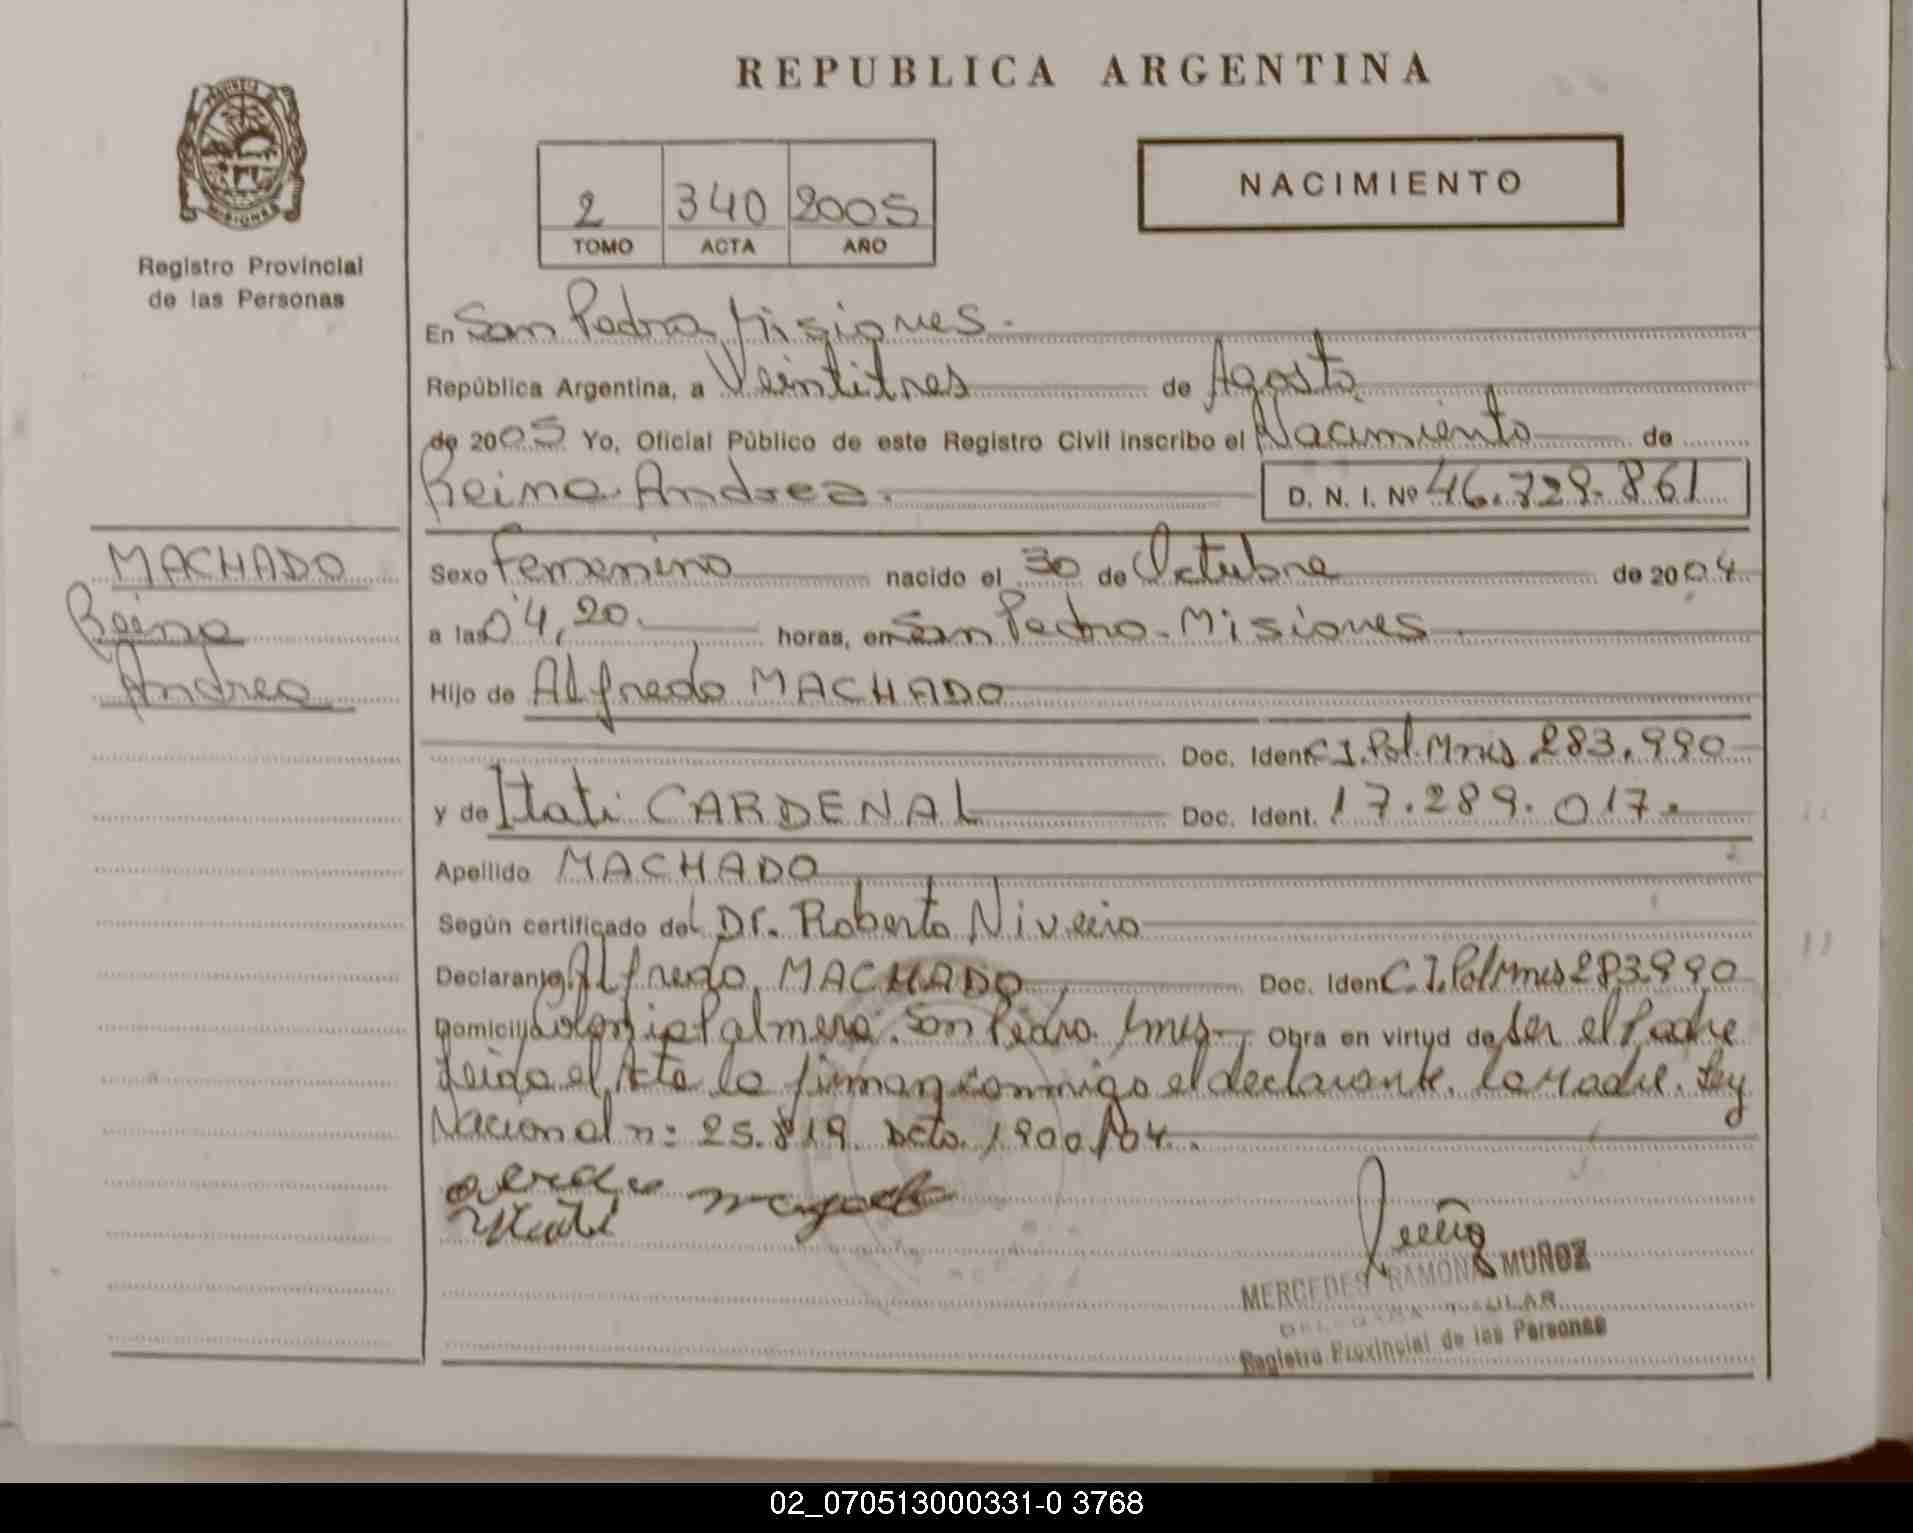 REPUBLICA ARGENTINA
NACIMIENTO
2 340 2005
TOMO ACTA AÑO
Registro Provincial
de las Personas
En San Pedro, Misiones.
República Argentina, a Veintitres de Agosto
de 2005 Yo, Oficial Público de este Registro Civil inscribo el Nacimiento de
Reina Andrea. D. N. I. Nº 46.728.861
MACHADO
Reina
Andrea
Sexo Femenino nacido el 30 de Octubre de 2004
a las 04,20. horas, en San Pedro - Misiones
Hijo de Alfredo MACHADO
Doc. Ident. C.I. Pol. Mnes 283.990
y de Itati CARDENAL Doc. Ident. 17.289.017.
Apellido MACHADO
Según certificado del Dr. Roberto
Declarante Alfredo MACHADO Doc. Iden C.I. Pol Mnes 283.990
Domicilio Colonia Palmera. San Pedro. Mnes. Obra en virtud de Ser el Padre
Leida el Acta la firman conmigo el declarante, la Madre. Ley
Nacional n: 25.819. Dcto. 1.900/04.
Itati
MERCEDES RAMONA MUÑOZ
DELEGADA TITULAR
Registro Provincial de las Personas
02_070513000331-0 3768